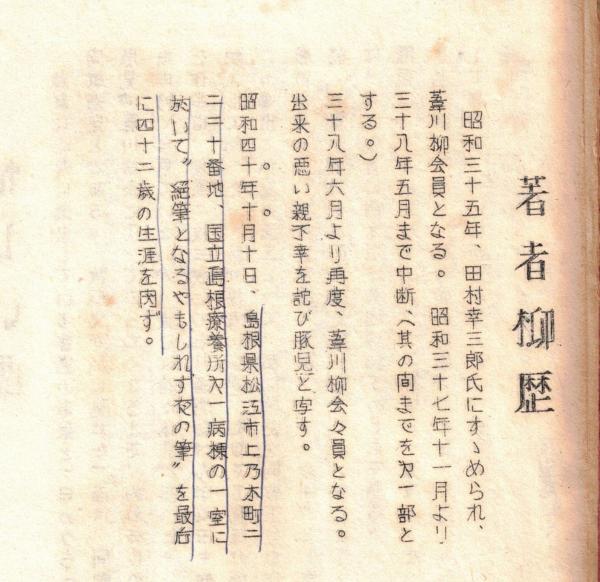 著者柳歴
昭和三十五年、田村幸三郎氏にすゝめられ、
葦川柳会員となる。　昭和三十七年十一月より
三十八年五月まで中断、（其の間までを才一部と
する。）
三十八年六月より再度、葦川柳会々員となる。
出来の悪い親不幸を詫び豚児と写す。
昭和四十年十月十日、島根県松江市上乃木町二
二二十番地、国立島根療養所才一病棟の一室に
於いて〝絶筆となるやもしれず夜の筆〟を最后
に四十二歳の生涯を閉ず。